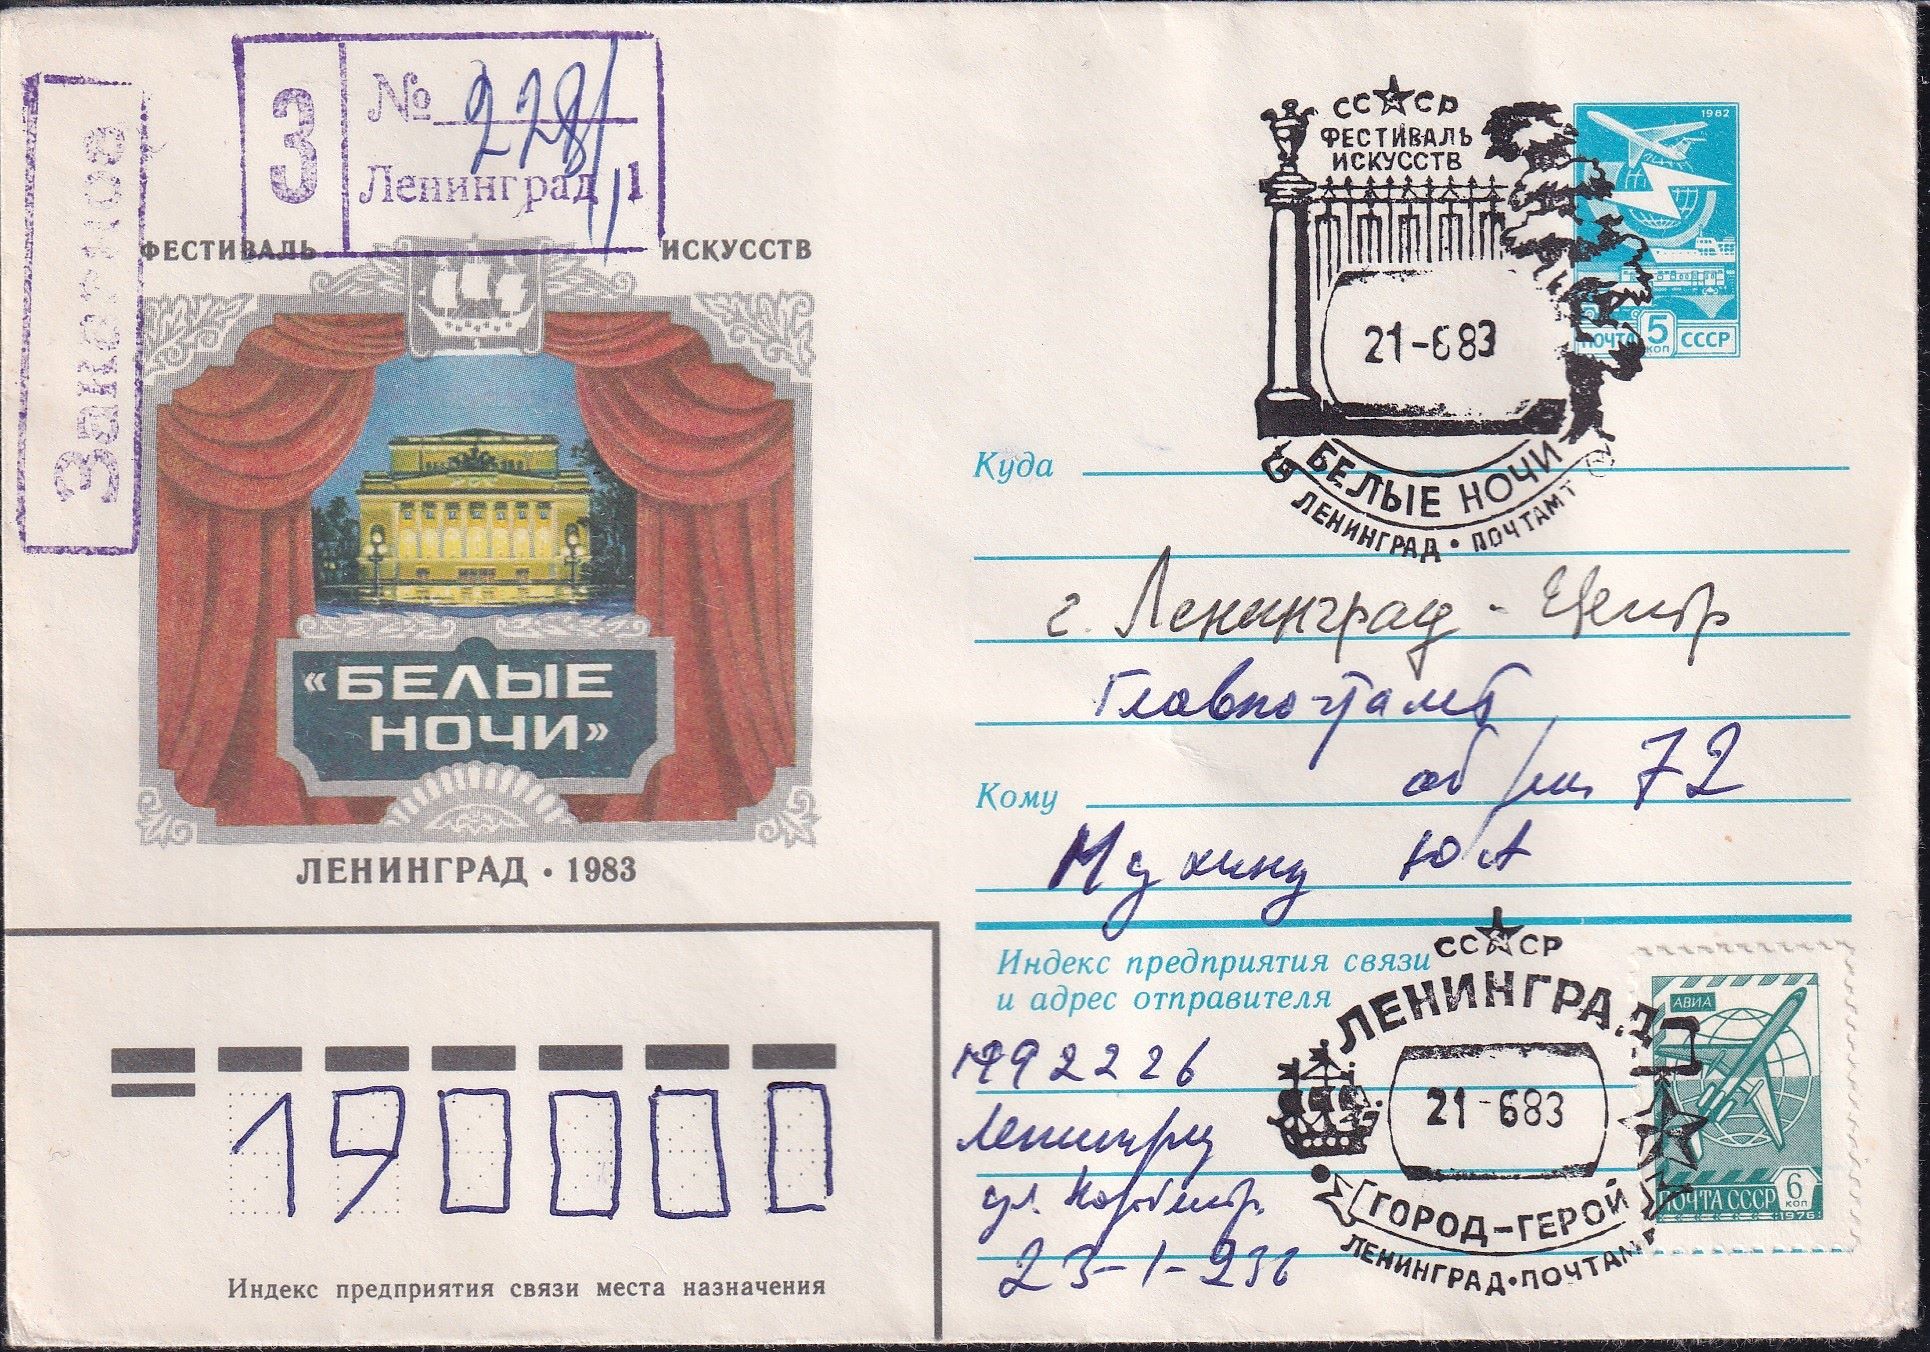 Заказное
З
№ 228
Ленинград 1
ФЕСТИВАЛЬ ИСКУССТВ
«БЕЛЫЕ
НОЧИ»
ЛЕНИНГРАД • 1983
СССР
ФЕСТИВАЛЬ
ИСКУССТВ
21-6 83
БЕЛЫЕ НОЧИ
ЛЕНИНГРАД • ПОЧТАМТ
1982
ПОЧТА 5 КОП СССР
Куда
г. Ленинград - Центр
Главпочтамт
72
Кому
Мухину Ю А
Индекс предприятия связи
и адрес отправителя
Ленинград
ул.
23-1-236
СССР
ЛЕНИНГРАД
21-683
ГОРОД-ГЕРОЙ
ЛЕНИНГРАД•ПОЧТАМТ
АВИА
ПОЧТА СССР 6 КОП
1976
190000
Индекс предприятия связи места назначения